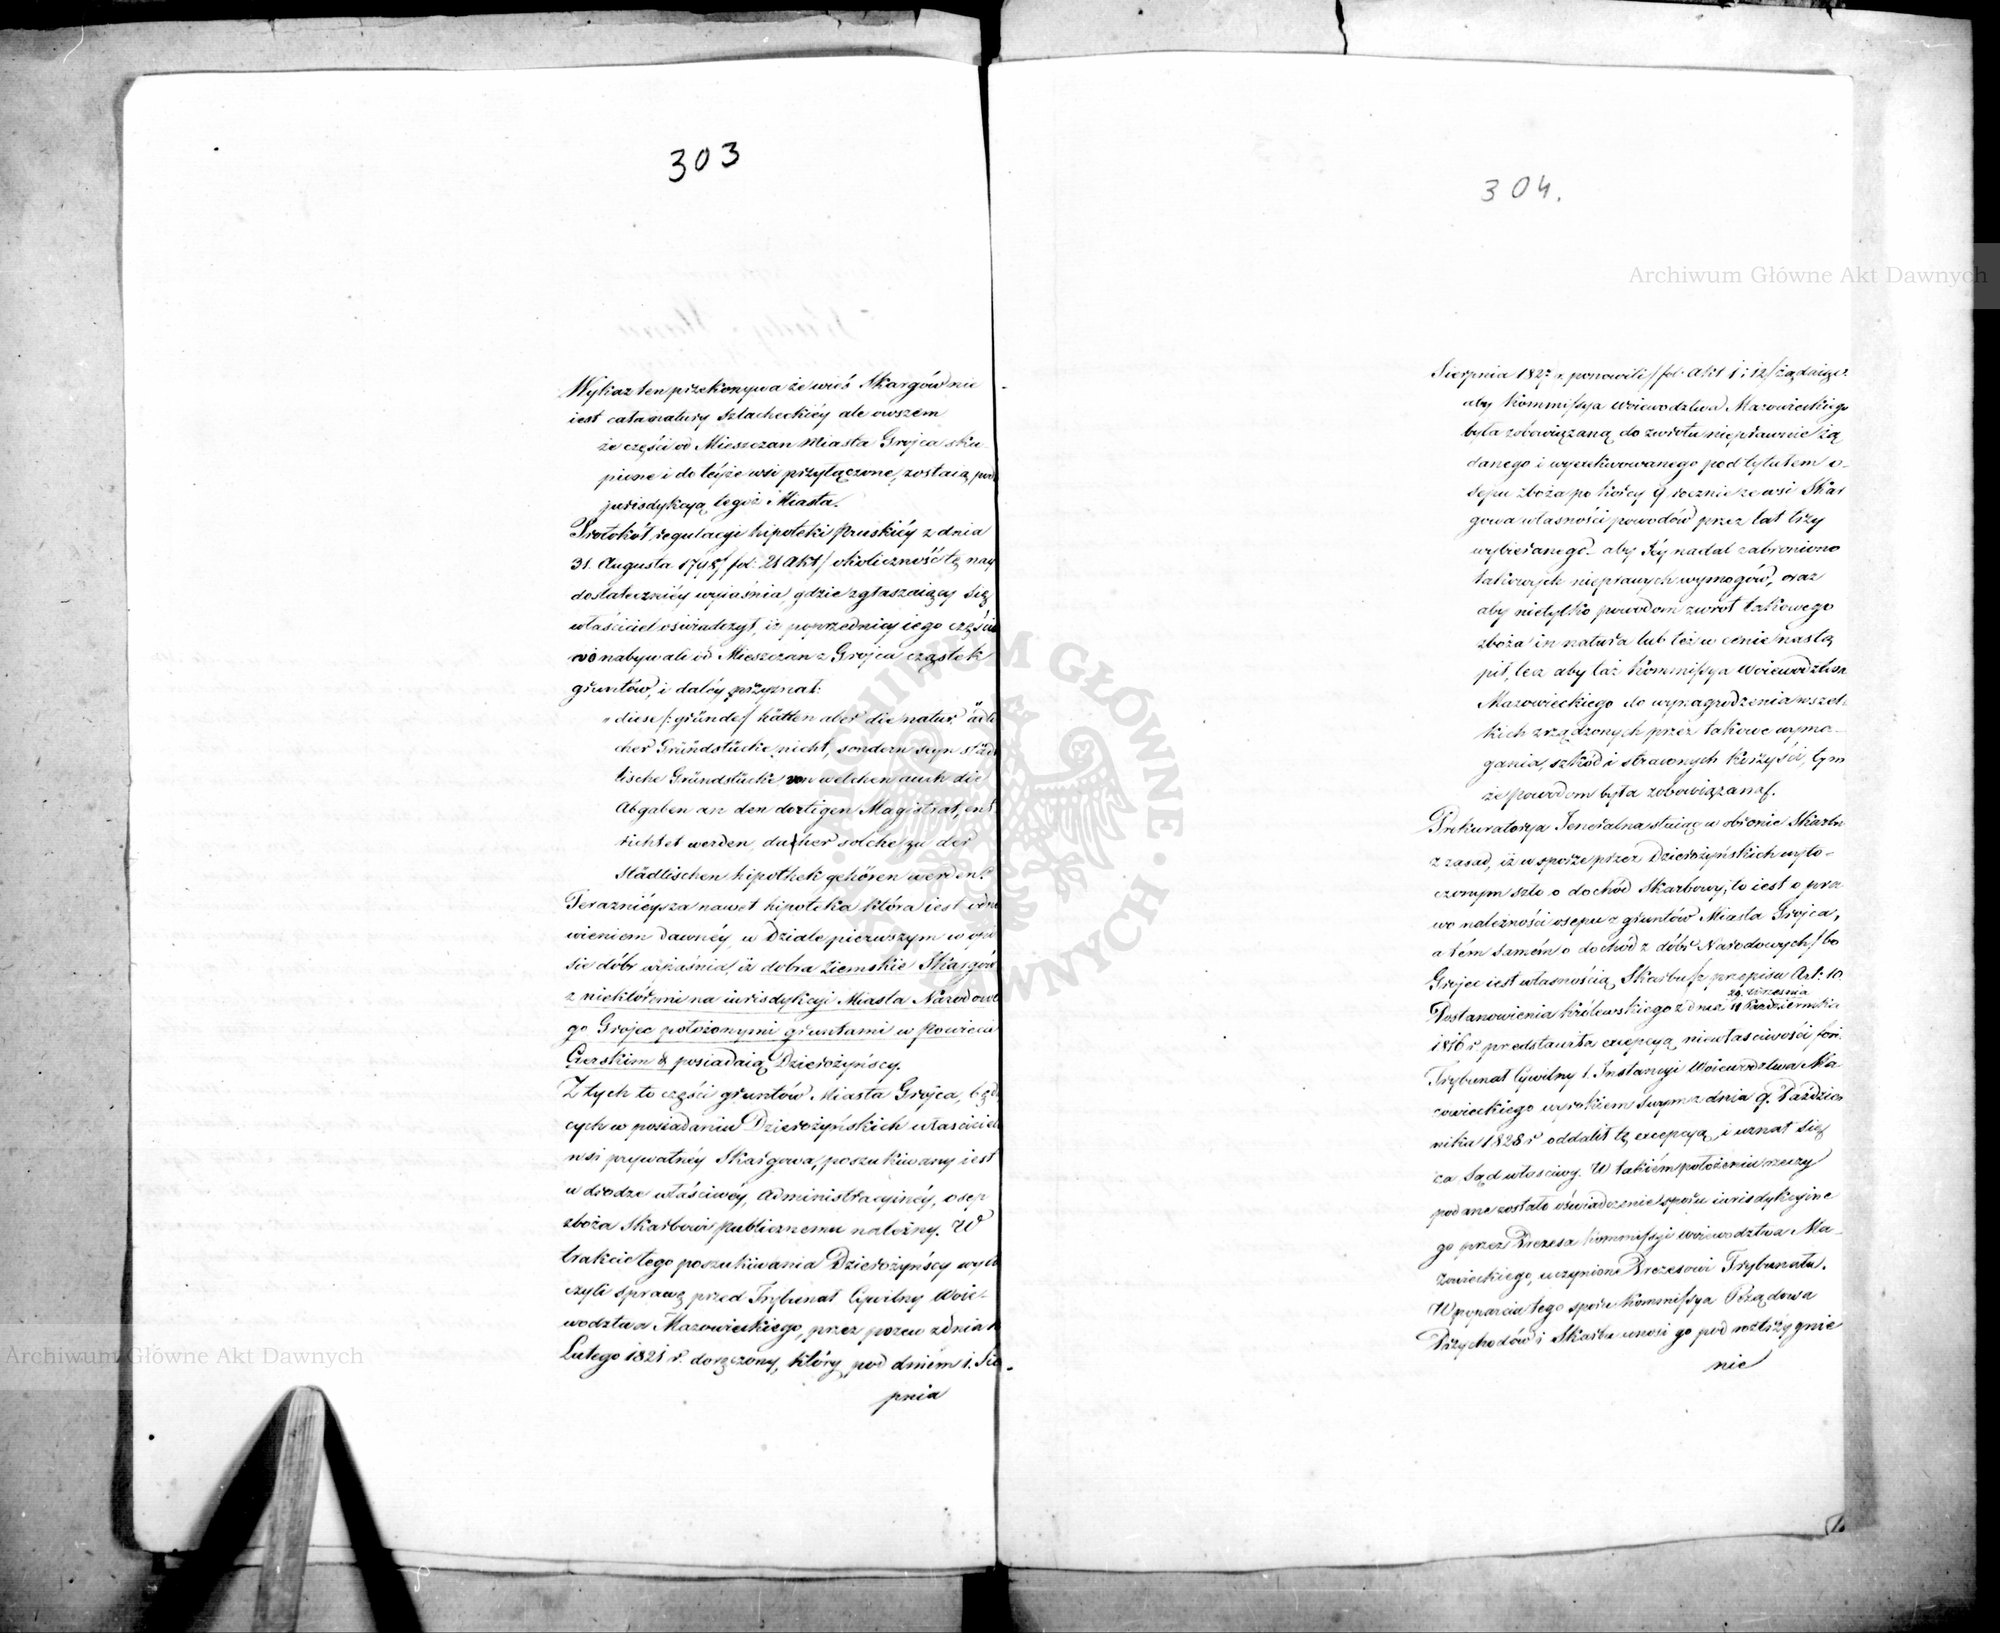 303
Wykaz ten przekonywa że wieś Skargów nie
iest cała natury szlacheckiéy ale owszem
że części od Mieszczan Miasta Grojca sku-
pione i do téyże wsi przyłączone, zostaią pod
jurisdykcyą tegoż Miasta.
Protokół regulacyi hipoteki Pruskiéy z dnia
31. Augusta fol: 21 Akt/ okoliczność tę nay
dostateczniéy wyiaśnia, gdzie zgłaszaiący się
właściciel oświadczył, iż poprzednicy iego częścio
wo nabywali od Mieszczan z Grojca cząstek
gruntów, i daléy przyznał:
„diese /: gründe/ hätten aber die natur ädli
cher Gründstücke nicht, sondern seyn städ
tische Gründstücke von welchen auch die
Abgaben an den dortigen Magistrat, ent
richtet werden, daher solche zu der
Städtischen hipothek gehören werden."
Teraznieysza nawet hipoteka która iest odno
wieniem dawnéy, w Dziale pierwszym w opi
sie dóbr wyiaśnia, iż dobra Ziemskie Skargów
z niektóremi na iurisdykcyi Miasta Narodowe
go Grojec położonymi gruntami w Powiecie
Czerskim & posiadaią Dzierożyńscy.
Z tych to części gruntów Miasta Grojca, będą
cych w posiadaniu Dzierożyńskich właścicieli
wsi prywatnéy Skargowa, poszukiwany iest
w drodze właściwéy, Administracyinéy, osep
zboża Skarbowi Publicznemu należny. W
trakcie tego poszukiwania Dzierożyńscy wyto
czyli sprawę przed Trybunał Cywilny Woie-
wództwa Mazowieckiego, przez pozew z dnia
Lutego 182 r. doręczony, który pod dniem 1. Sie
pnia
304.
Sierpnia 1827 r. ponowili / fol. Akt 1 i 12/ żądaiąc
aby Kommissya Woiewództwa Mazowieckiego
była zobowiązaną do zwrotu nieprawnie żą
danego i wyexekwowanego pod tytułem o-
sepu zboża po korcy 9 rocznie ze wsi Skar
gowa własności powodów przez lat trzy
wybieranego - aby Jéy nadal zabroniono
takowych nieprawych wymogów, oraz
aby nietylko powodom zwrot takowego
zboża in natura lub też w cenie nastą
pił, lecz aby taż Kommissya Woiewództwa
Mazowieckiego do wynagrodzenia wszel-
kich zrządzonych przez takowe wyma-
gania, szkód i straconych korzyści, tym
że powodom była zobowiązaną.
Prokuratorya Jeneralna stając w obronie Skarbu
z zasad, iż w sporze przez Dzierożyńskich wyto-
czonym szło o dochód Skarbowy, to iest o pra
wo należności osepu z gruntów Miasta Grojca,
a tém samém o dochód z dóbr Narodowych / bo
Grojec iest własnością Skarbu/ z przepisu Art: 10.
29. Września
Postanowienia Królewskiego z dnia 11 Października
1816 r. przedstawiła excepcyą niewłaściwości fori.
Trybunał Cywilny 1. Instancyi Woiewództwa Ma
zowieckiego wyrokiem swym z dnia 9. Paździer
nika 1828 r oddalił tę excepcyą, i uznał się
za Sąd właściwy. W takiém położeniu rzeczy
podane zostało oświadczenie sporu iurisdykcyine
go przez Prezesa Kommissyi Woiewództwa Ma-
zowieckiego, uczynione Prezesowi Trybunału.
W poparciu tego sporu Kommissya Rządowa
Przychodów i Skarbu wnosi go pod roztrzygnie
nie
Archiwum Główne Akt Dawnych
Archiwum Główne Akt Dawnych
ARCHIWUM GŁÓWNE AKT DAWNYCH